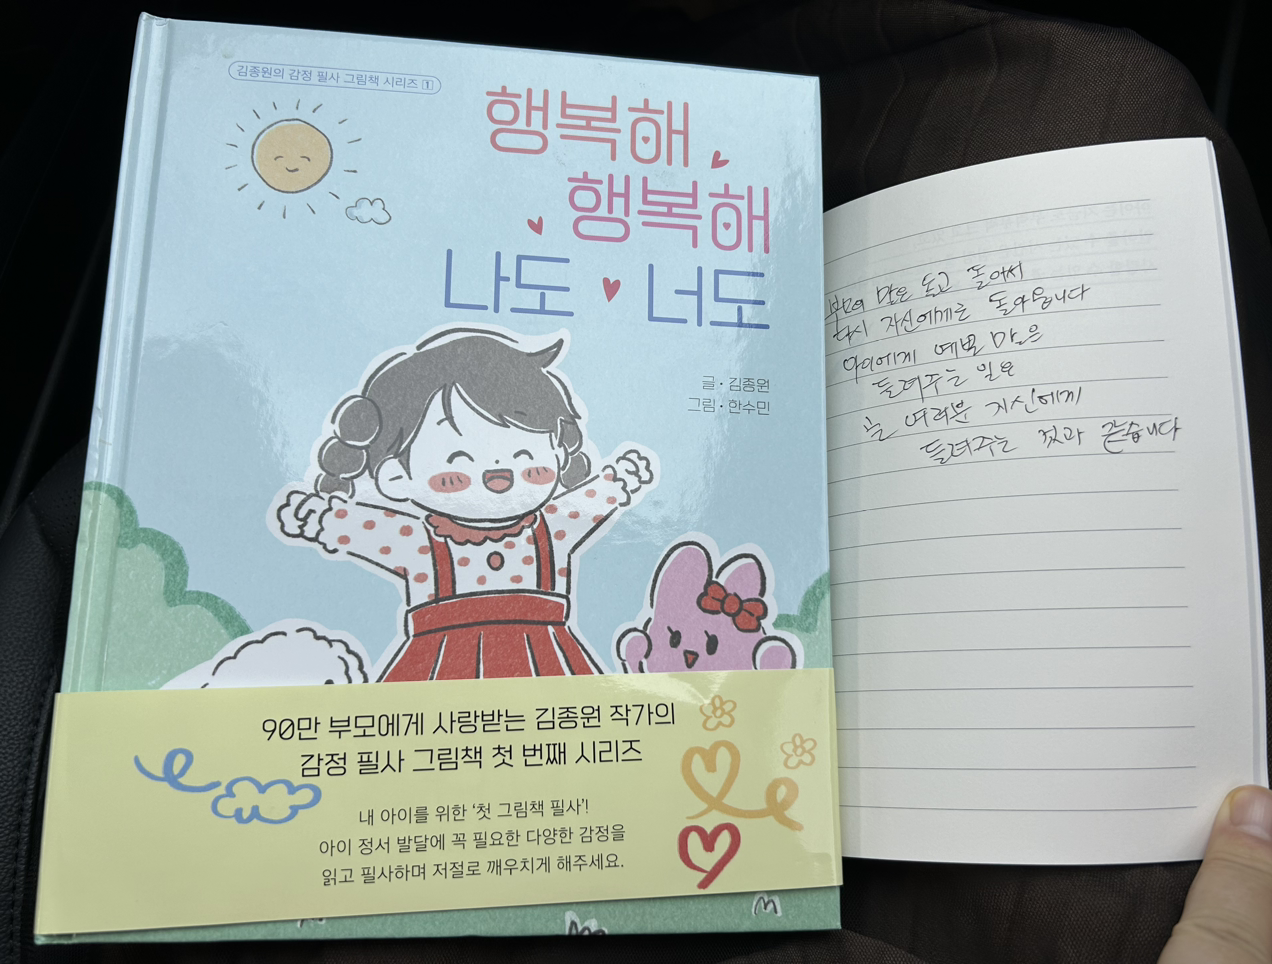 김종원의 감정 필사 그림책 시리즈 1
행복해
행복해
나도 너도
글·김종원
그림·한수민
90만 부모에게 사랑받는 김종원 작가의
감정 필사 그림책 첫 번째 시리즈
내 아이를 위한 '첫 그림책 필사'!
아이 정서 발달에 꼭 필요한 다양한 감정을
읽고 필사하며 저절로 깨우치게 해주세요.
부모의 말은 돌고 돌아서
다시 자신에게로 돌아옵니다
아이에게 예쁜 말을
들려주는 일은
곧 여러분 자신에게
들려주는 것과 같습니다